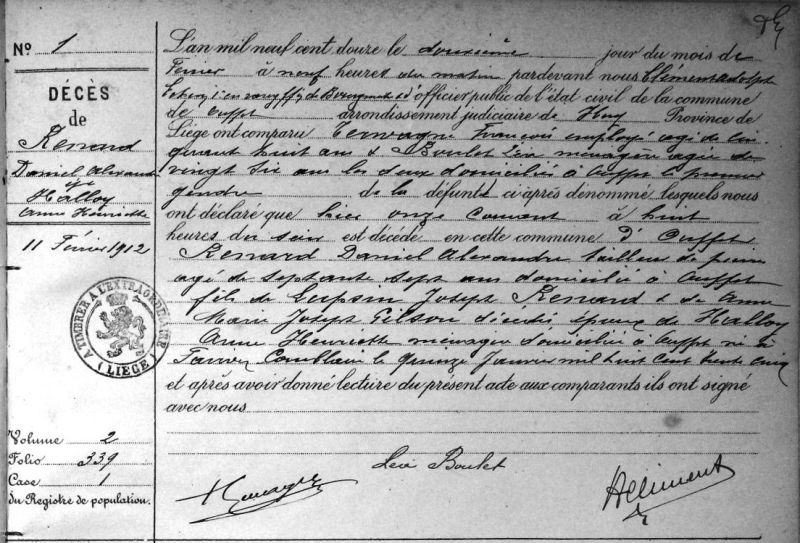 Nº 1
DÉCÈS
de
Renard
Daniel Alexandre
Halloy
Anne Henriette
11 Février 1912
A TIMBRER A L'EXTRAORDINAIRE
(LIÈGE)
Volume 2
Folio 339
Case 1
du Registre de population.
L'an mil neuf cent douze le douzième jour du mois de
Février à neuf heures du matin pardevant nous
officier public de l'état civil de la commune
de Ouffet arrondissement judiciaire de Huy Province de
Liège ont comparu Terwagne François employé agé de
huit ans & Boulet Léa ménagère agée de
vingt six ans les deux domiciliés à Ouffet le premier
gendre de la défunte ci après dénommé lesquels nous
ont déclaré que hier onze courant à huit
heures du soir est décédé en cette commune d'Ouffet
Renard Daniel Alexandre tailleur de pierre
agé de septante sept ans domicilié à Ouffet
fils de Joseph Renard & de Anne
Marie Joseph Gilson époux de Halloy
Anne Henriette ménagère domiciliée à Ouffet né à
Comblain le quinze Janvier mil huit cent trente cinq
et après avoir donné lecture du présent acte aux comparants ils ont signé
avec nous
Léa Boulet